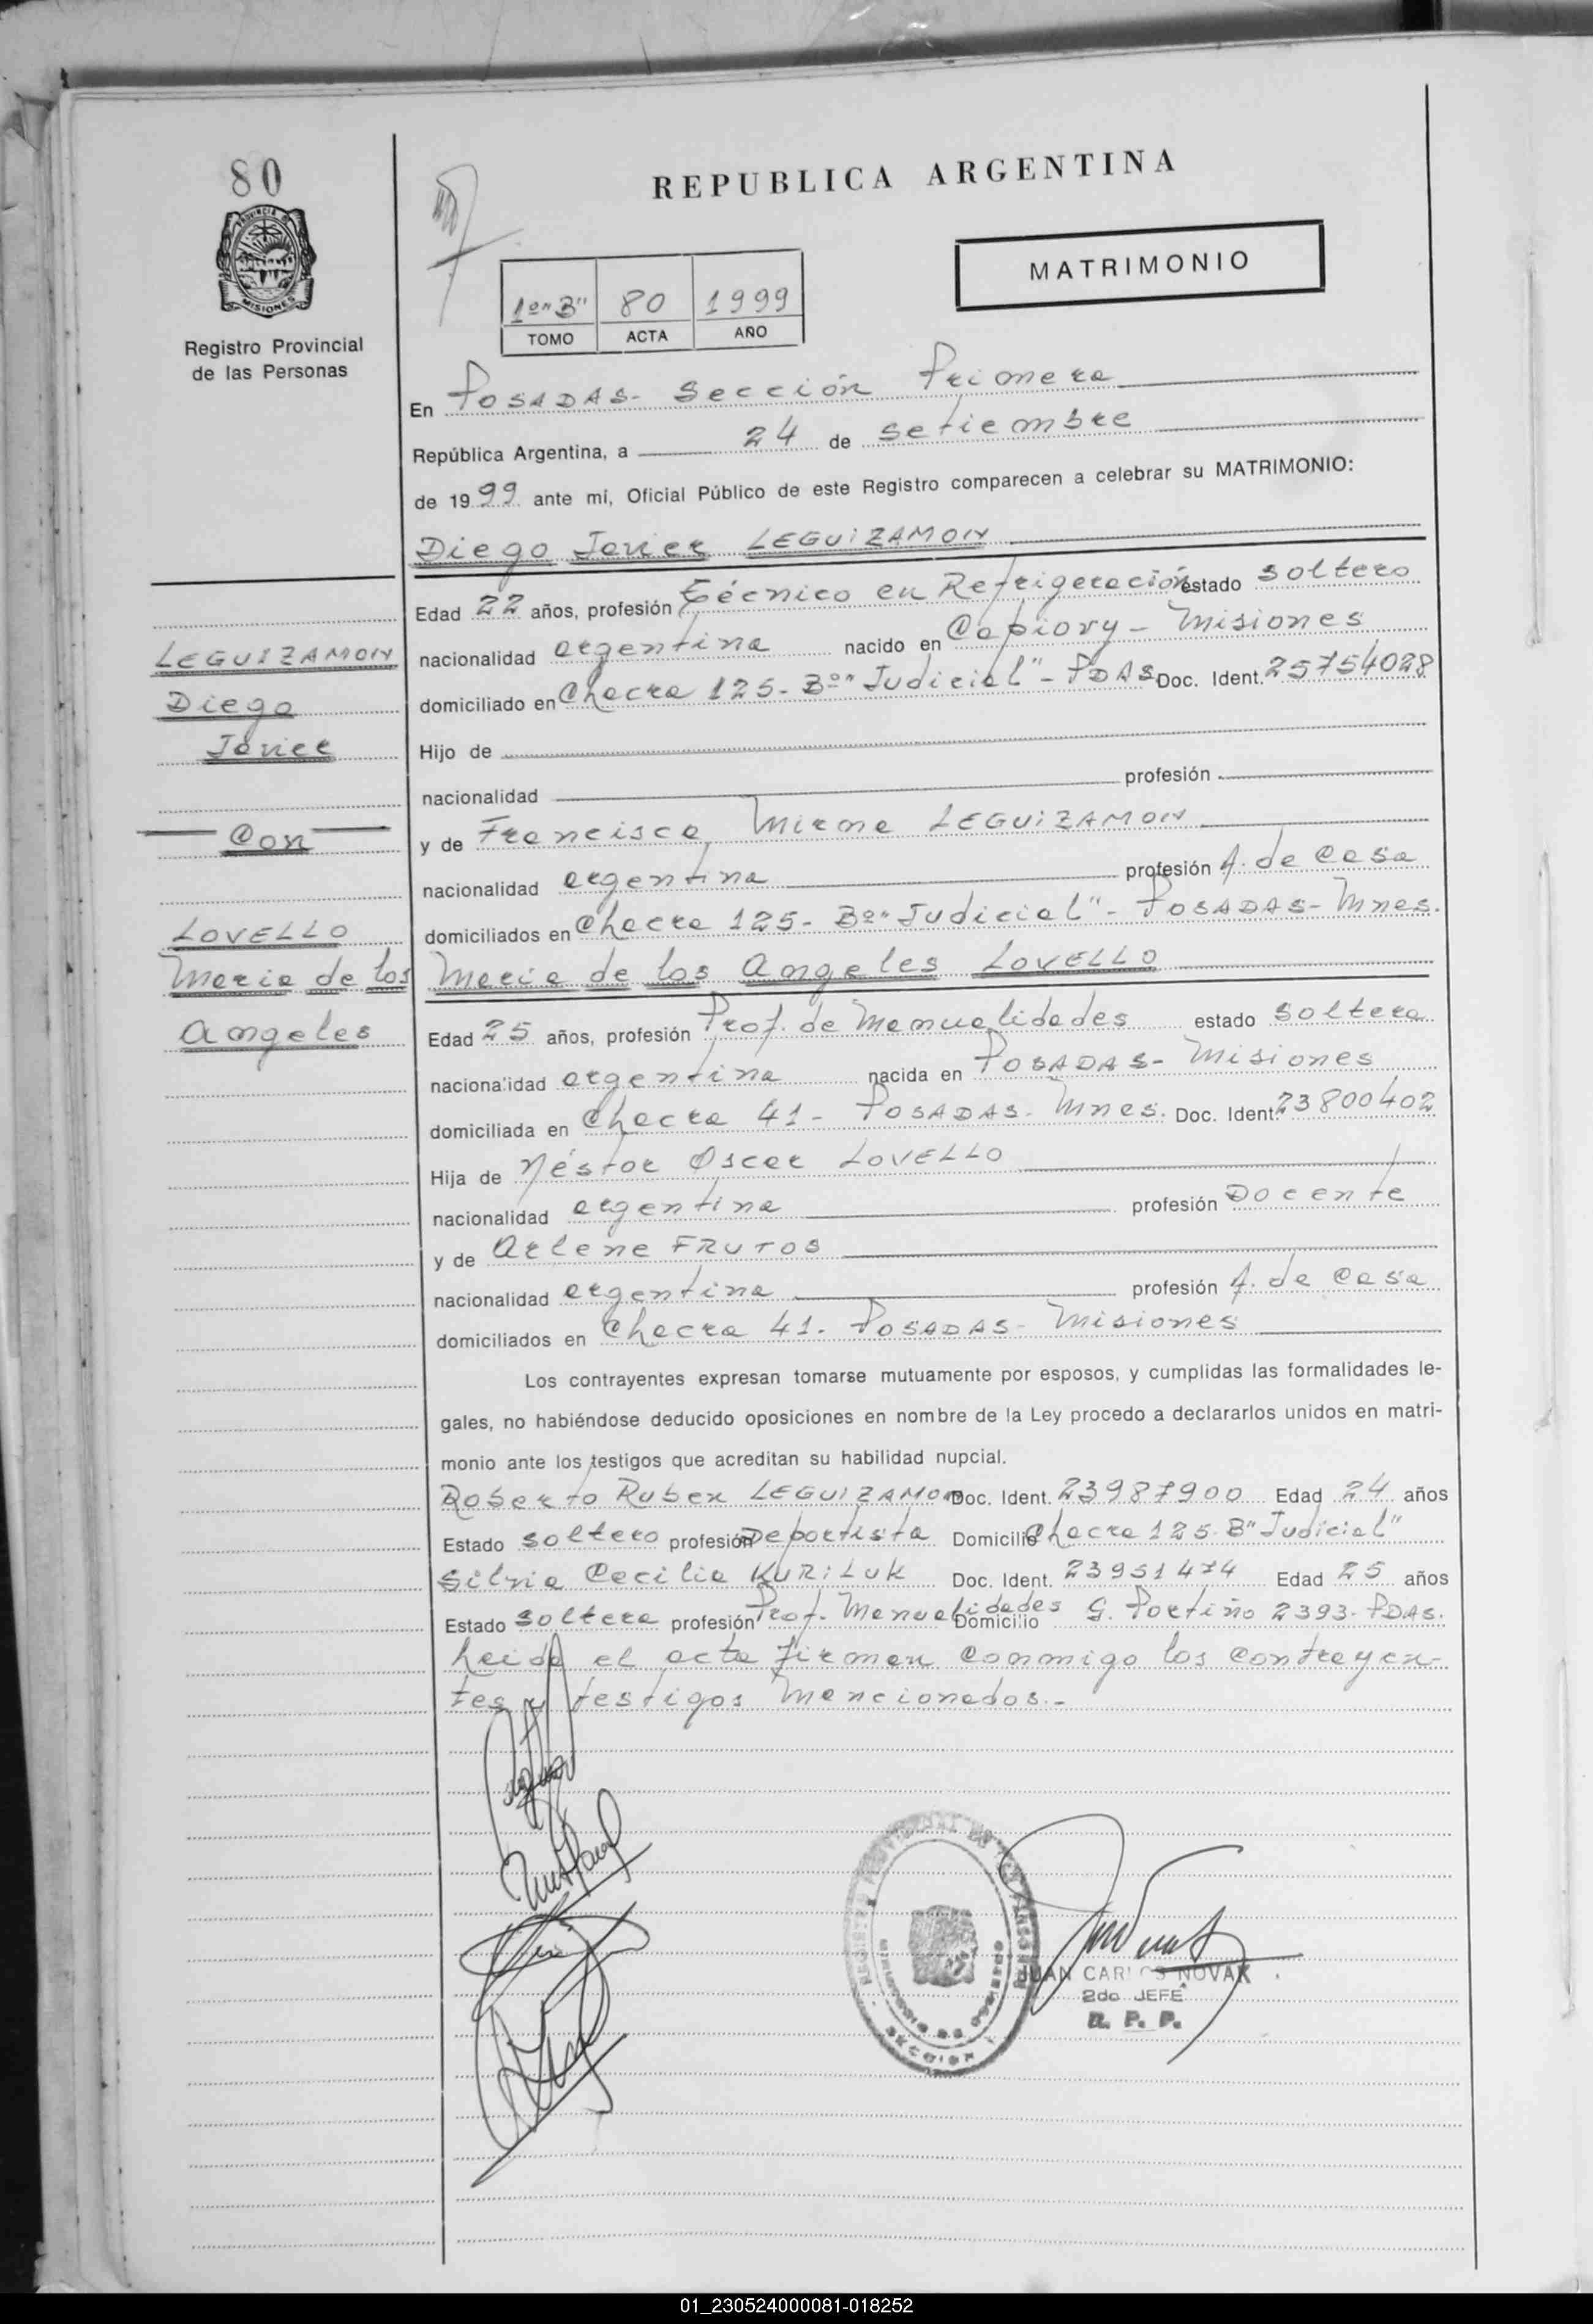 80
PROVINCIA DE
MISIONES
Registro Provincial
de las Personas
REPUBLICA ARGENTINA
MATRIMONIO
1º "B" 80 1999
TOMO ACTA AÑO
En POSADAS- Sección Primera
República Argentina, a 24 de setiembre
de 1999 ante mí, Oficial Público de este Registro comparecen a celebrar su MATRIMONIO:
Diego Javier LEGUIZAMON
Edad 22 años, profesión técnico en Refrigeración estado soltero
nacionalidad argentina nacido en Capiovy - Misiones
domiciliado en Chacra 125- Bº "Judicial" - PDAS Doc. Ident. 25754028
Hijo de
nacionalidad profesión
y de Francisca Mirna LEGUIZAMON
nacionalidad argentina profesión A. de casa
domiciliados en Chacra 125- Bº "Judicial" - POSADAS- Mnes.
LEGUIZAMON
Diego
Javier
Con
LOVELLO
Maria de los
Angeles
Maria de los Angeles LOVELLO
Edad 25 años, profesión Prof. de Manualidades estado soltera
nacionalidad argentina nacida en POSADAS- Misiones
domiciliada en Chacra 41- POSADAS- Mnes. Doc. Ident. 23800402
Hija de Néstor Oscar LOVELLO
nacionalidad argentina profesión Docente
y de Arlene FRUTOS
nacionalidad argentina profesión A. de casa
domiciliados en Chacra 41- POSADAS- Misiones
Los contrayentes expresan tomarse mutuamente por esposos, y cumplidas las formalidades le-
gales, no habiéndose deducido oposiciones en nombre de la Ley procedo a declararlos unidos en matri-
monio ante los testigos que acreditan su habilidad nupcial.
Roberto Ruben LEGUIZAMON Doc. Ident. 23987900 Edad 24 años
Estado soltero profesión Deportista Domicilio Chacra 125- B "Judicial"
Silvia Cecilia KURILUK Doc. Ident. 23951474 Edad 25 años
Estado soltera profesión Prof. Manualidades Domicilio G. Portiño 2393- PDAS.
Leida el acta firman conmigo los contrayen-
tes y testigos mencionados.-
JUAN CARLOS NOVAK
2do JEFE
R. P. P.
SECCION
01_230524000081-018252